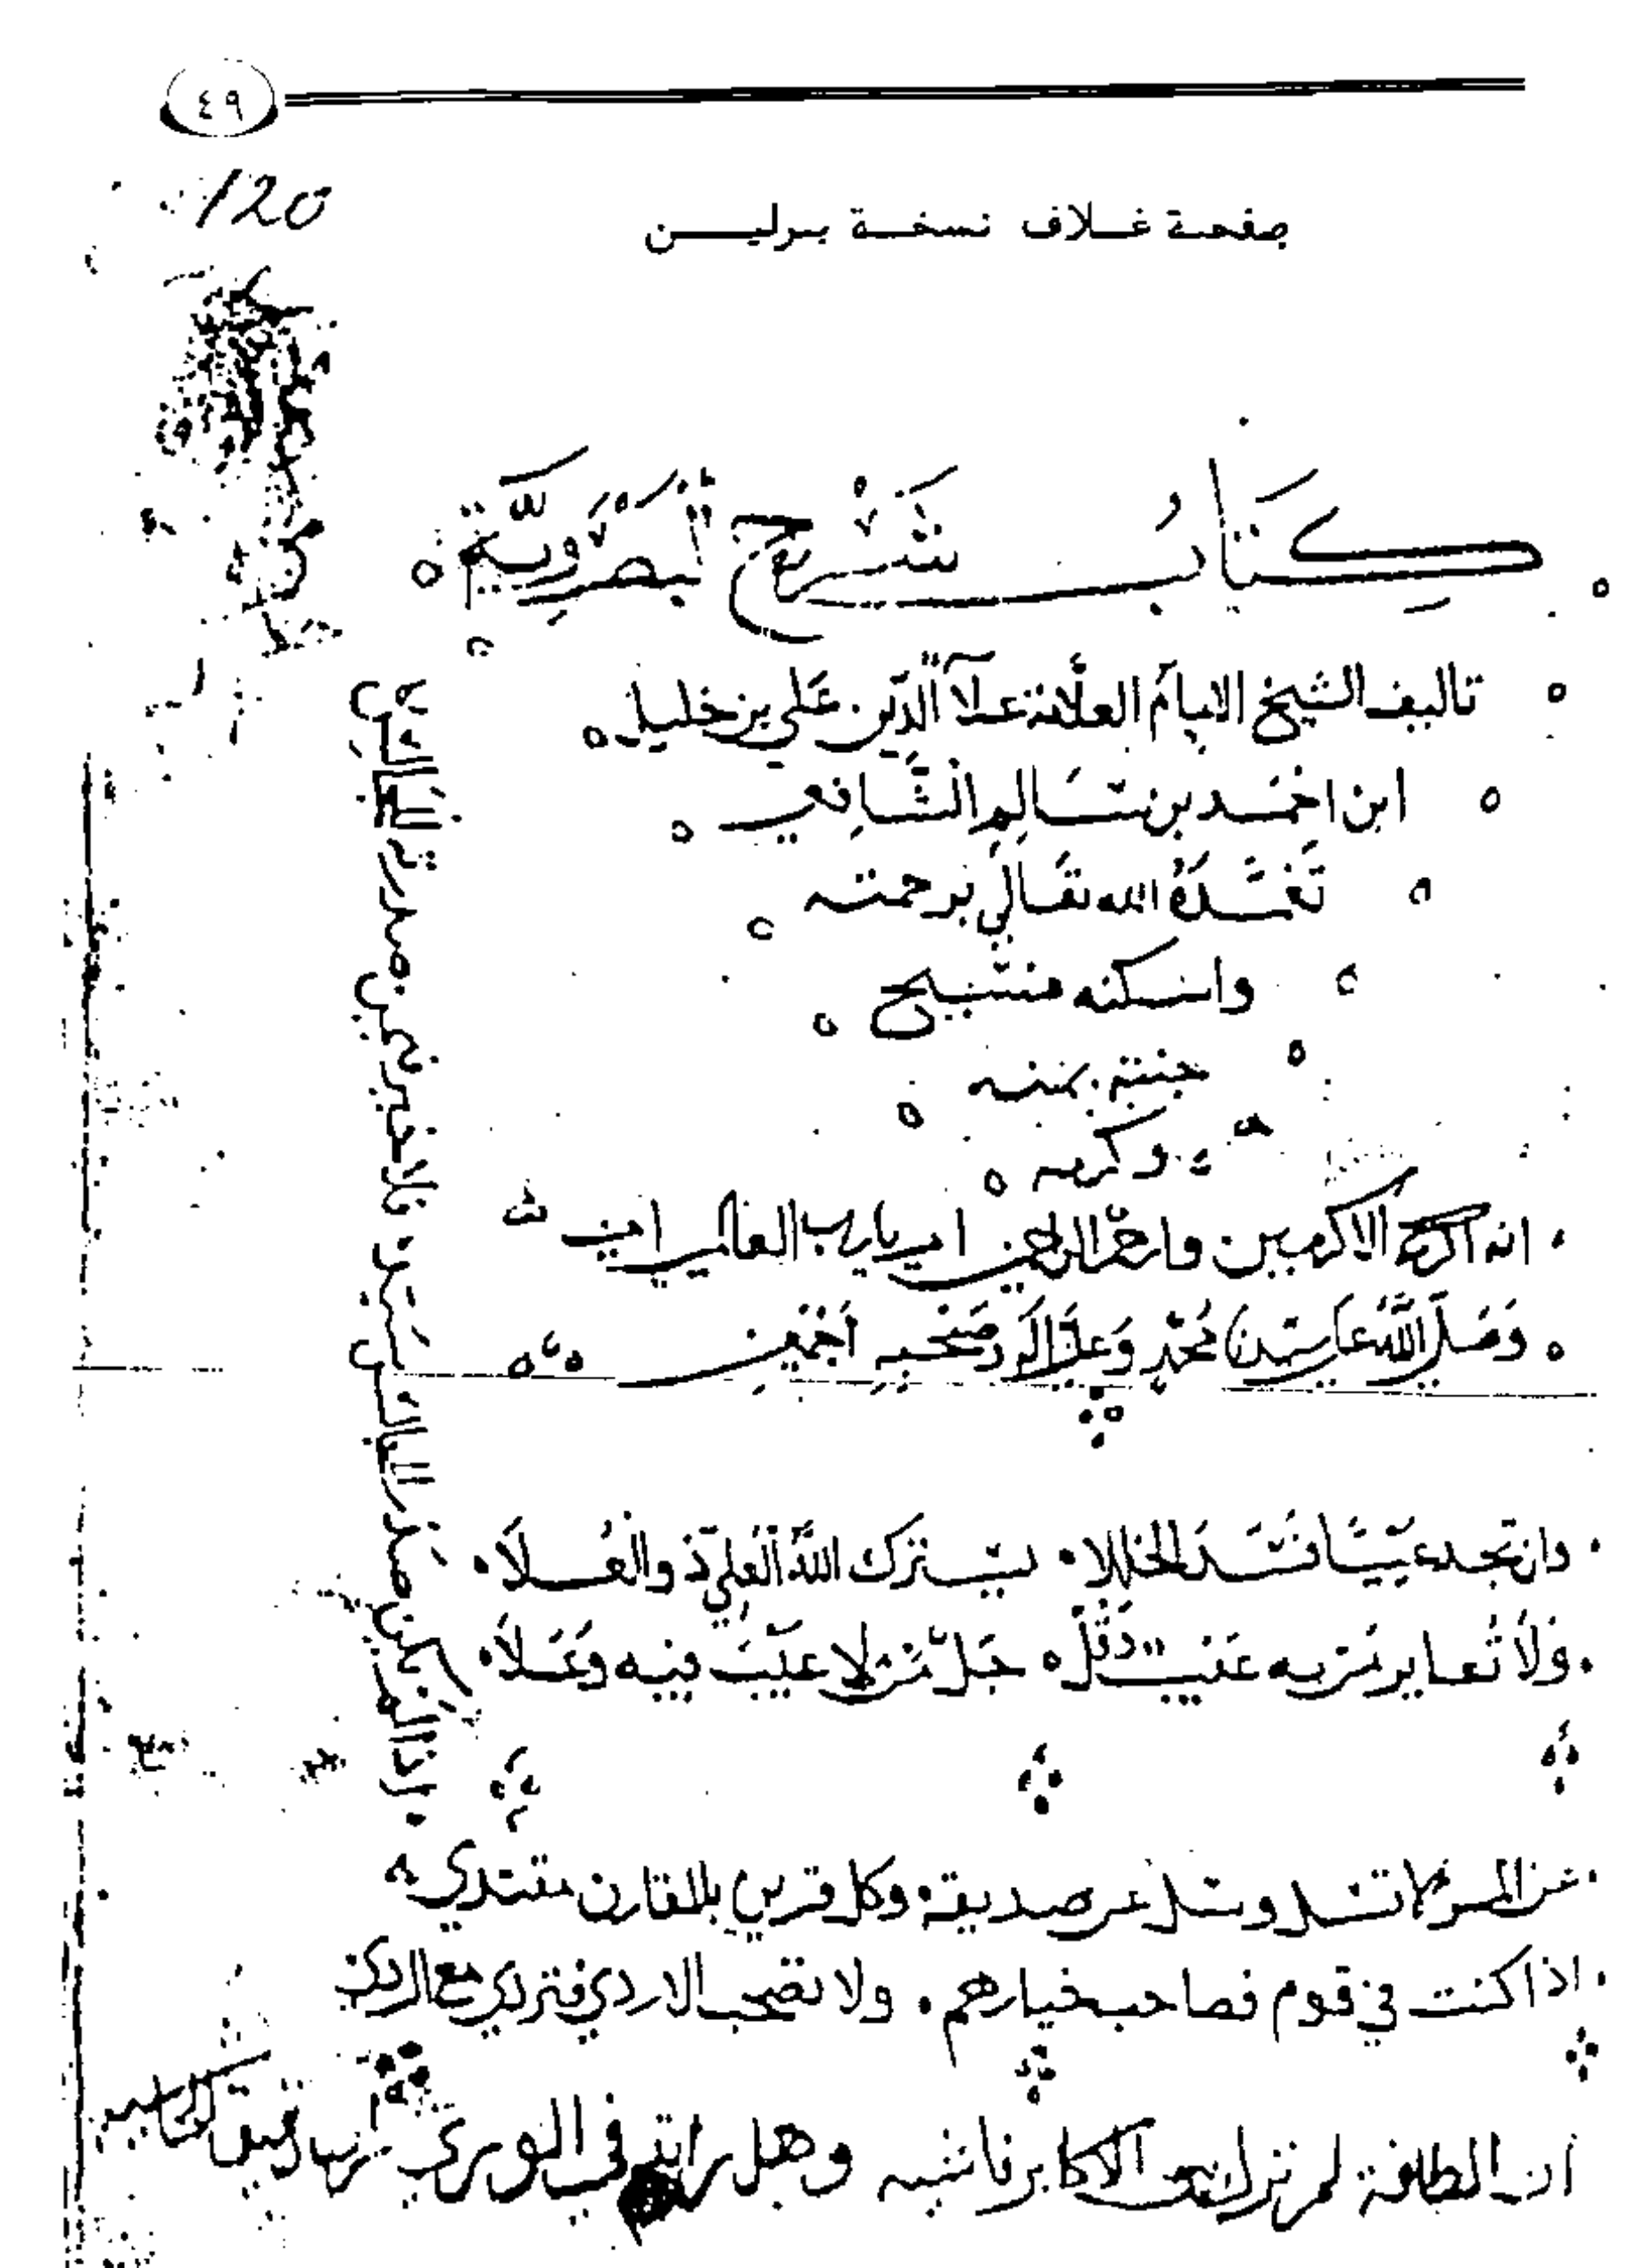 ٤٩
120
صفحة غلاف نسخة برلين
كِتَابُ شَرْح البصْرَوِيَّة
تاليف الشيخ الامام العلامة علآ الدّين عَلي بن خليل
ابن احْمَد بن سَالِم الشَّافِعي
تَغَمَّدَهُ الله تعَالي برحمته
واسكنه فسيح
جنته بمنه
وكرمه
انه اكرم الاكرمين وارحم الراحمين امين يا رب العالمين امين
وَصَلَّى اللَّهُ عَلى سيدنا مُحَمَّدٍ وَعَلَى آلِهِ وَصَحْبِهِ اَجْمَعِين
وان تجد عَيْبًا فَسُدَ الخللا ليسترك اللهُ العَلِي ذو العُلاَ
وَلاَ تُعاير مَن به عَيْب وَقُل جَلّ مَن لا عَيْبَ فيه وَعَلاَ
عن المرء لا تسل وسل عن صديقه وكل قرين بالمقارن مقتدي
اذا كنت في قوم فصاحب خيارهم ولا تصحب الاردي فتردي مع الردي
ان لم نزل وهل رايتم في الوري